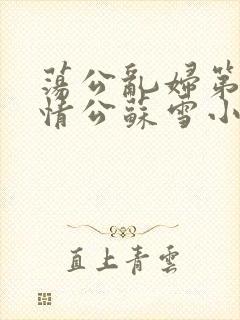 蕩公亂婦第
情公蘇雪小
直上青雲